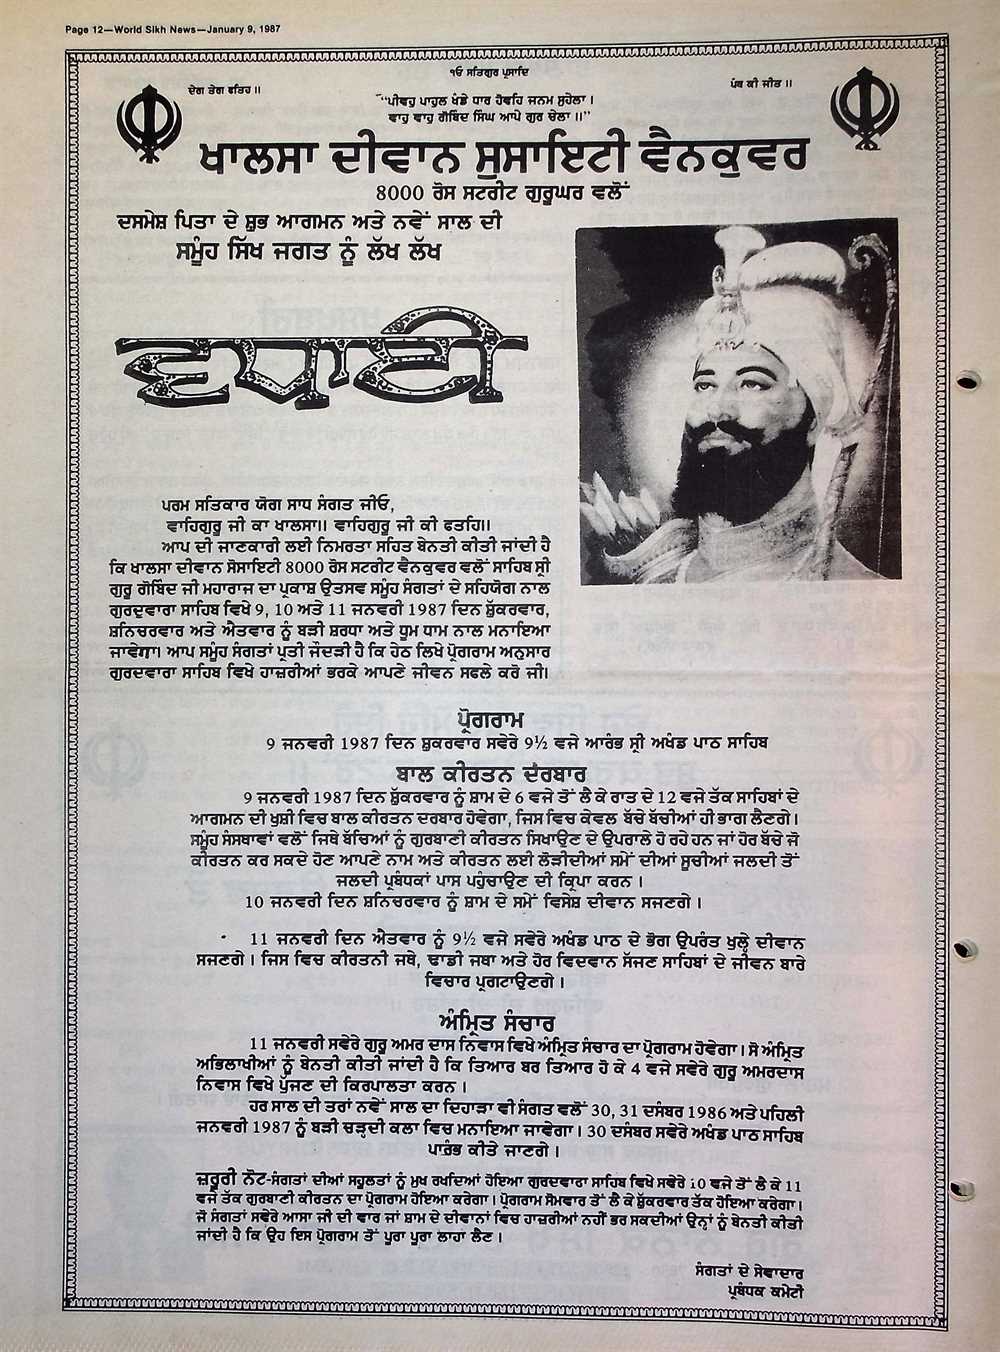 Page 12—World Sikh News—January 9, 1987
੧ਓ ਸਤਿਗੁਰ ਪ੍ਰਸਾਦਿ
ਦੇਗ ਤੇਗ ਫਤਿਹ ॥
ਪੰਥ ਕੀ ਜੀਤ ॥
"ਪੀਵਹੁ ਪਾਹੁਲ ਖੰਡੇ ਧਾਰ ਹੋਵਹਿ ਜਨਮ ਸੁਹੇਲਾ ।
ਵਾਹੁ ਵਾਹੁ ਗੋਬਿੰਦ ਸਿੰਘ ਆਪੇ ਗੁਰ ਚੇਲਾ ॥"
ਖਾਲਸਾ ਦੀਵਾਨ ਸੁਸਾਇਟੀ ਵੈਨਕੁਵਰ
8000 ਰੋਸ ਸਟਰੀਟ ਗੁਰੂਘਰ ਵਲੋਂ
ਦਸਮੇਸ਼ ਪਿਤਾ ਦੇ ਸ਼ੁਭ ਆਗਮਨ ਅਤੇ ਨਵੇਂ ਸਾਲ ਦੀ
ਸਮੂੰਹ ਸਿੱਖ ਜਗਤ ਨੂੰ ਲੱਖ ਲੱਖ
ਵਧਾਈ
ਪਰਮ ਸਤਿਕਾਰ ਯੋਗ ਸਾਧ ਸੰਗਤ ਜੀਓ,
ਵਾਹਿਗੁਰੂ ਜੀ ਕਾ ਖਾਲਸਾ॥ ਵਾਹਿਗੁਰੂ ਜੀ ਕੀ ਫਤਹਿ॥
ਆਪ ਦੀ ਜਾਣਕਾਰੀ ਲਈ ਨਿਮਰਤਾ ਸਹਿਤ ਬੇਨਤੀ ਕੀਤੀ ਜਾਂਦੀ ਹੈ
ਕਿ ਖਾਲਸਾ ਦੀਵਾਨ ਸੋਸਾਇਟੀ 8000 ਰੋਸ ਸਟਰੀਟ ਵੈਨਕੁਵਰ ਵਲੋਂ ਸਾਹਿਬ ਸ੍ਰੀ
ਗੁਰੂ ਗੋਬਿੰਦ ਜੀ ਮਹਾਰਾਜ ਦਾ ਪ੍ਰਕਾਸ਼ ਉਤਸਵ ਸਮੂੰਹ ਸੰਗਤਾਂ ਦੇ ਸਹਿਯੋਗ ਨਾਲ
ਗੁਰਦੁਵਾਰਾ ਸਾਹਿਬ ਵਿਖੇ 9, 10 ਅਤੇ 11 ਜਨਵਰੀ 1987 ਦਿਨ ਸ਼ੁੱਕਰਵਾਰ,
ਸ਼ਨਿਚਰਵਾਰ ਅਤੇ ਐਤਵਾਰ ਨੂੰ ਬੜੀ ਸ਼ਰਧਾ ਅਤੇ ਧੂਮ ਧਾਮ ਨਾਲ ਮਨਾਇਆ
ਜਾਵੇਗਾ। ਆਪ ਸਮੂੰਹ ਸੰਗਤਾਂ ਪ੍ਰਤੀ ਜੋਦੜੀ ਹੈ ਕਿ ਹੇਠ ਲਿਖੇ ਪ੍ਰੋਗਰਾਮ ਅਨੁਸਾਰ
ਗੁਰਦਵਾਰਾ ਸਾਹਿਬ ਵਿਖੇ ਹਾਜ਼ਰੀਆਂ ਭਰਕੇ ਆਪਣੇ ਜੀਵਨ ਸਫਲੇ ਕਰੋ ਜੀ।
ਪ੍ਰੋਗਰਾਮ
9 ਜਨਵਰੀ 1987 ਦਿਨ ਸ਼ੁਕਰਵਾਰ ਸਵੇਰੇ 9½ ਵਜੇ ਆਰੰਭ ਸ੍ਰੀ ਅਖੰਡ ਪਾਠ ਸਾਹਿਬ
ਬਾਲ ਕੀਰਤਨ ਦਰਬਾਰ
9 ਜਨਵਰੀ 1987 ਦਿਨ ਸ਼ੁੱਕਰਵਾਰ ਨੂੰ ਸ਼ਾਮ ਦੇ 6 ਵਜੇ ਤੋਂ ਲੈ ਕੇ ਰਾਤ ਦੇ 12 ਵਜੇ ਤੱਕ ਸਾਹਿਬਾਂ ਦੇ
ਆਗਮਨ ਦੀ ਖੁਸ਼ੀ ਵਿਚ ਬਾਲ ਕੀਰਤਨ ਦਰਬਾਰ ਹੋਵੇਗਾ, ਜਿਸ ਵਿਚ ਕੇਵਲ ਬੱਚੇ ਬੱਚੀਆਂ ਹੀ ਭਾਗ ਲੈਣਗੇ।
ਸਮੂੰਹ ਸੰਸਥਾਵਾਂ ਵਲੋਂ ਜਿਥੇ ਬੱਚਿਆਂ ਨੂੰ ਗੁਰਬਾਣੀ ਕੀਰਤਨ ਸਿਖਾਉਣ ਦੇ ਉਪਰਾਲੇ ਹੋ ਰਹੇ ਹਨ ਜਾਂ ਹੋਰ ਬੱਚੇ ਜੋ
ਕੀਰਤਨ ਕਰ ਸਕਦੇ ਹੋਣ ਆਪਣੇ ਨਾਮ ਅਤੇ ਕੀਰਤਨ ਲਈ ਲੋੜੀਦੀਆਂ ਸਮੇਂ ਦੀਆਂ ਸੂਚੀਆਂ ਜਲਦੀ ਤੋਂ
ਜਲਦੀ ਪ੍ਰਬੰਧਕਾਂ ਪਾਸ ਪਹੁੰਚਾਉਣ ਦੀ ਕ੍ਰਿਪਾ ਕਰਨ ।
10 ਜਨਵਰੀ ਦਿਨ ਸ਼ਨਿਚਰਵਾਰ ਨੂੰ ਸ਼ਾਮ ਦੇ ਸਮੇਂ ਵਿਸੇਸ਼ ਦੀਵਾਨ ਸਜਣਗੇ ।
11 ਜਨਵਰੀ ਦਿਨ ਐਤਵਾਰ ਨੂੰ 9½ ਵਜੇ ਸਵੇਰੇ ਅਖੰਡ ਪਾਠ ਦੇ ਭੋਗ ਉਪਰੰਤ ਖੁਲ੍ਹੇ ਦੀਵਾਨ
ਸਜਣਗੇ । ਜਿਸ ਵਿਚ ਕੀਰਤਨੀ ਜਥੇ, ਢਾਡੀ ਜਥਾ ਅਤੇ ਹੋਰ ਵਿਦਵਾਨ ਸੱਜਣ ਸਾਹਿਬਾਂ ਦੇ ਜੀਵਨ ਬਾਰੇ
ਵਿਚਾਰ ਪ੍ਰਗਟਾਉਣਗੇ ।
ਅੰਮ੍ਰਿਤ ਸੰਚਾਰ
11 ਜਨਵਰੀ ਸਵੇਰੇ ਗੁਰੂ ਅਮਰ ਦਾਸ ਨਿਵਾਸ ਵਿਖੇ ਅੰਮ੍ਰਿਤ ਸੰਚਾਰ ਦਾ ਪ੍ਰੋਗਰਾਮ ਹੋਵੇਗਾ । ਸੋ ਅੰਮ੍ਰਿਤ
ਅਭਿਲਾਖੀਆਂ ਨੂੰ ਬੇਨਤੀ ਕੀਤੀ ਜਾਂਦੀ ਹੈ ਕਿ ਤਿਆਰ ਬਰ ਤਿਆਰ ਹੋ ਕੇ 4 ਵਜੇ ਸਵੇਰੇ ਗੁਰੂ ਅਮਰਦਾਸ
ਨਿਵਾਸ ਵਿਖੇ ਪੁੱਜਣ ਦੀ ਕਿਰਪਾਲਤਾ ਕਰਨ ।
ਹਰ ਸਾਲ ਦੀ ਤਰਾਂ ਨਵੇਂ ਸਾਲ ਦਾ ਦਿਹਾੜਾ ਵੀ ਸੰਗਤ ਵਲੋਂ 30, 31 ਦਸੰਬਰ 1986 ਅਤੇ ਪਹਿਲੀ
ਜਨਵਰੀ 1987 ਨੂੰ ਬੜੀ ਚੜ੍ਹਦੀ ਕਲਾ ਵਿਚ ਮਨਾਇਆ ਜਾਵੇਗਾ । 30 ਦਸੰਬਰ ਸਵੇਰੇ ਅਖੰਡ ਪਾਠ ਸਾਹਿਬ
ਪਾਰੰਭ ਕੀਤੇ ਜਾਣਗੇ ।
ਜ਼ਰੂਰੀ ਨੋਟ-ਸੰਗਤਾਂ ਦੀਆਂ ਸਹੂਲਤਾਂ ਨੂੰ ਮੁਖ ਰਖਦਿਆਂ ਹੋਇਆ ਗੁਰਦਵਾਰਾ ਸਾਹਿਬ ਵਿਖੇ ਸਵੇਰੇ 10 ਵਜੇ ਤੋਂ ਲੈ ਕੇ 11
ਵਜੇ ਤੱਕ ਗੁਰਬਾਣੀ ਕੀਰਤਨ ਦਾ ਪ੍ਰੋਗਰਾਮ ਹੋਇਆ ਕਰੇਗਾ । ਪ੍ਰੋਗਰਾਮ ਸੋਮਵਾਰ ਤੋਂ ਲੈ ਕੇ ਸ਼ੁੱਕਰਵਾਰ ਤੱਕ ਹੋਇਆ ਕਰੇਗਾ ।
ਜੋ ਸੰਗਤਾਂ ਸਵੇਰੇ ਆਸਾ ਜੀ ਦੀ ਵਾਰ ਜਾਂ ਸ਼ਾਮ ਦੇ ਦੀਵਾਨਾਂ ਵਿਚ ਹਾਜ਼ਰੀਆਂ ਨਹੀਂ ਭਰ ਸਕਦੀਆਂ ਉਨ੍ਹਾਂ ਨੂੰ ਬੇਨਤੀ ਕੀਤੀ
ਜਾਂਦੀ ਹੈ ਕਿ ਉਹ ਇਸ ਪ੍ਰੋਗਰਾਮ ਤੋਂ ਪੂਰਾ ਪੂਰਾ ਲਾਹਾ ਲੈਣ ।
ਸੰਗਤਾਂ ਦੇ ਸੇਵਾਦਾਰ
ਪ੍ਰਬੰਧਕ ਕਮੇਟੀ